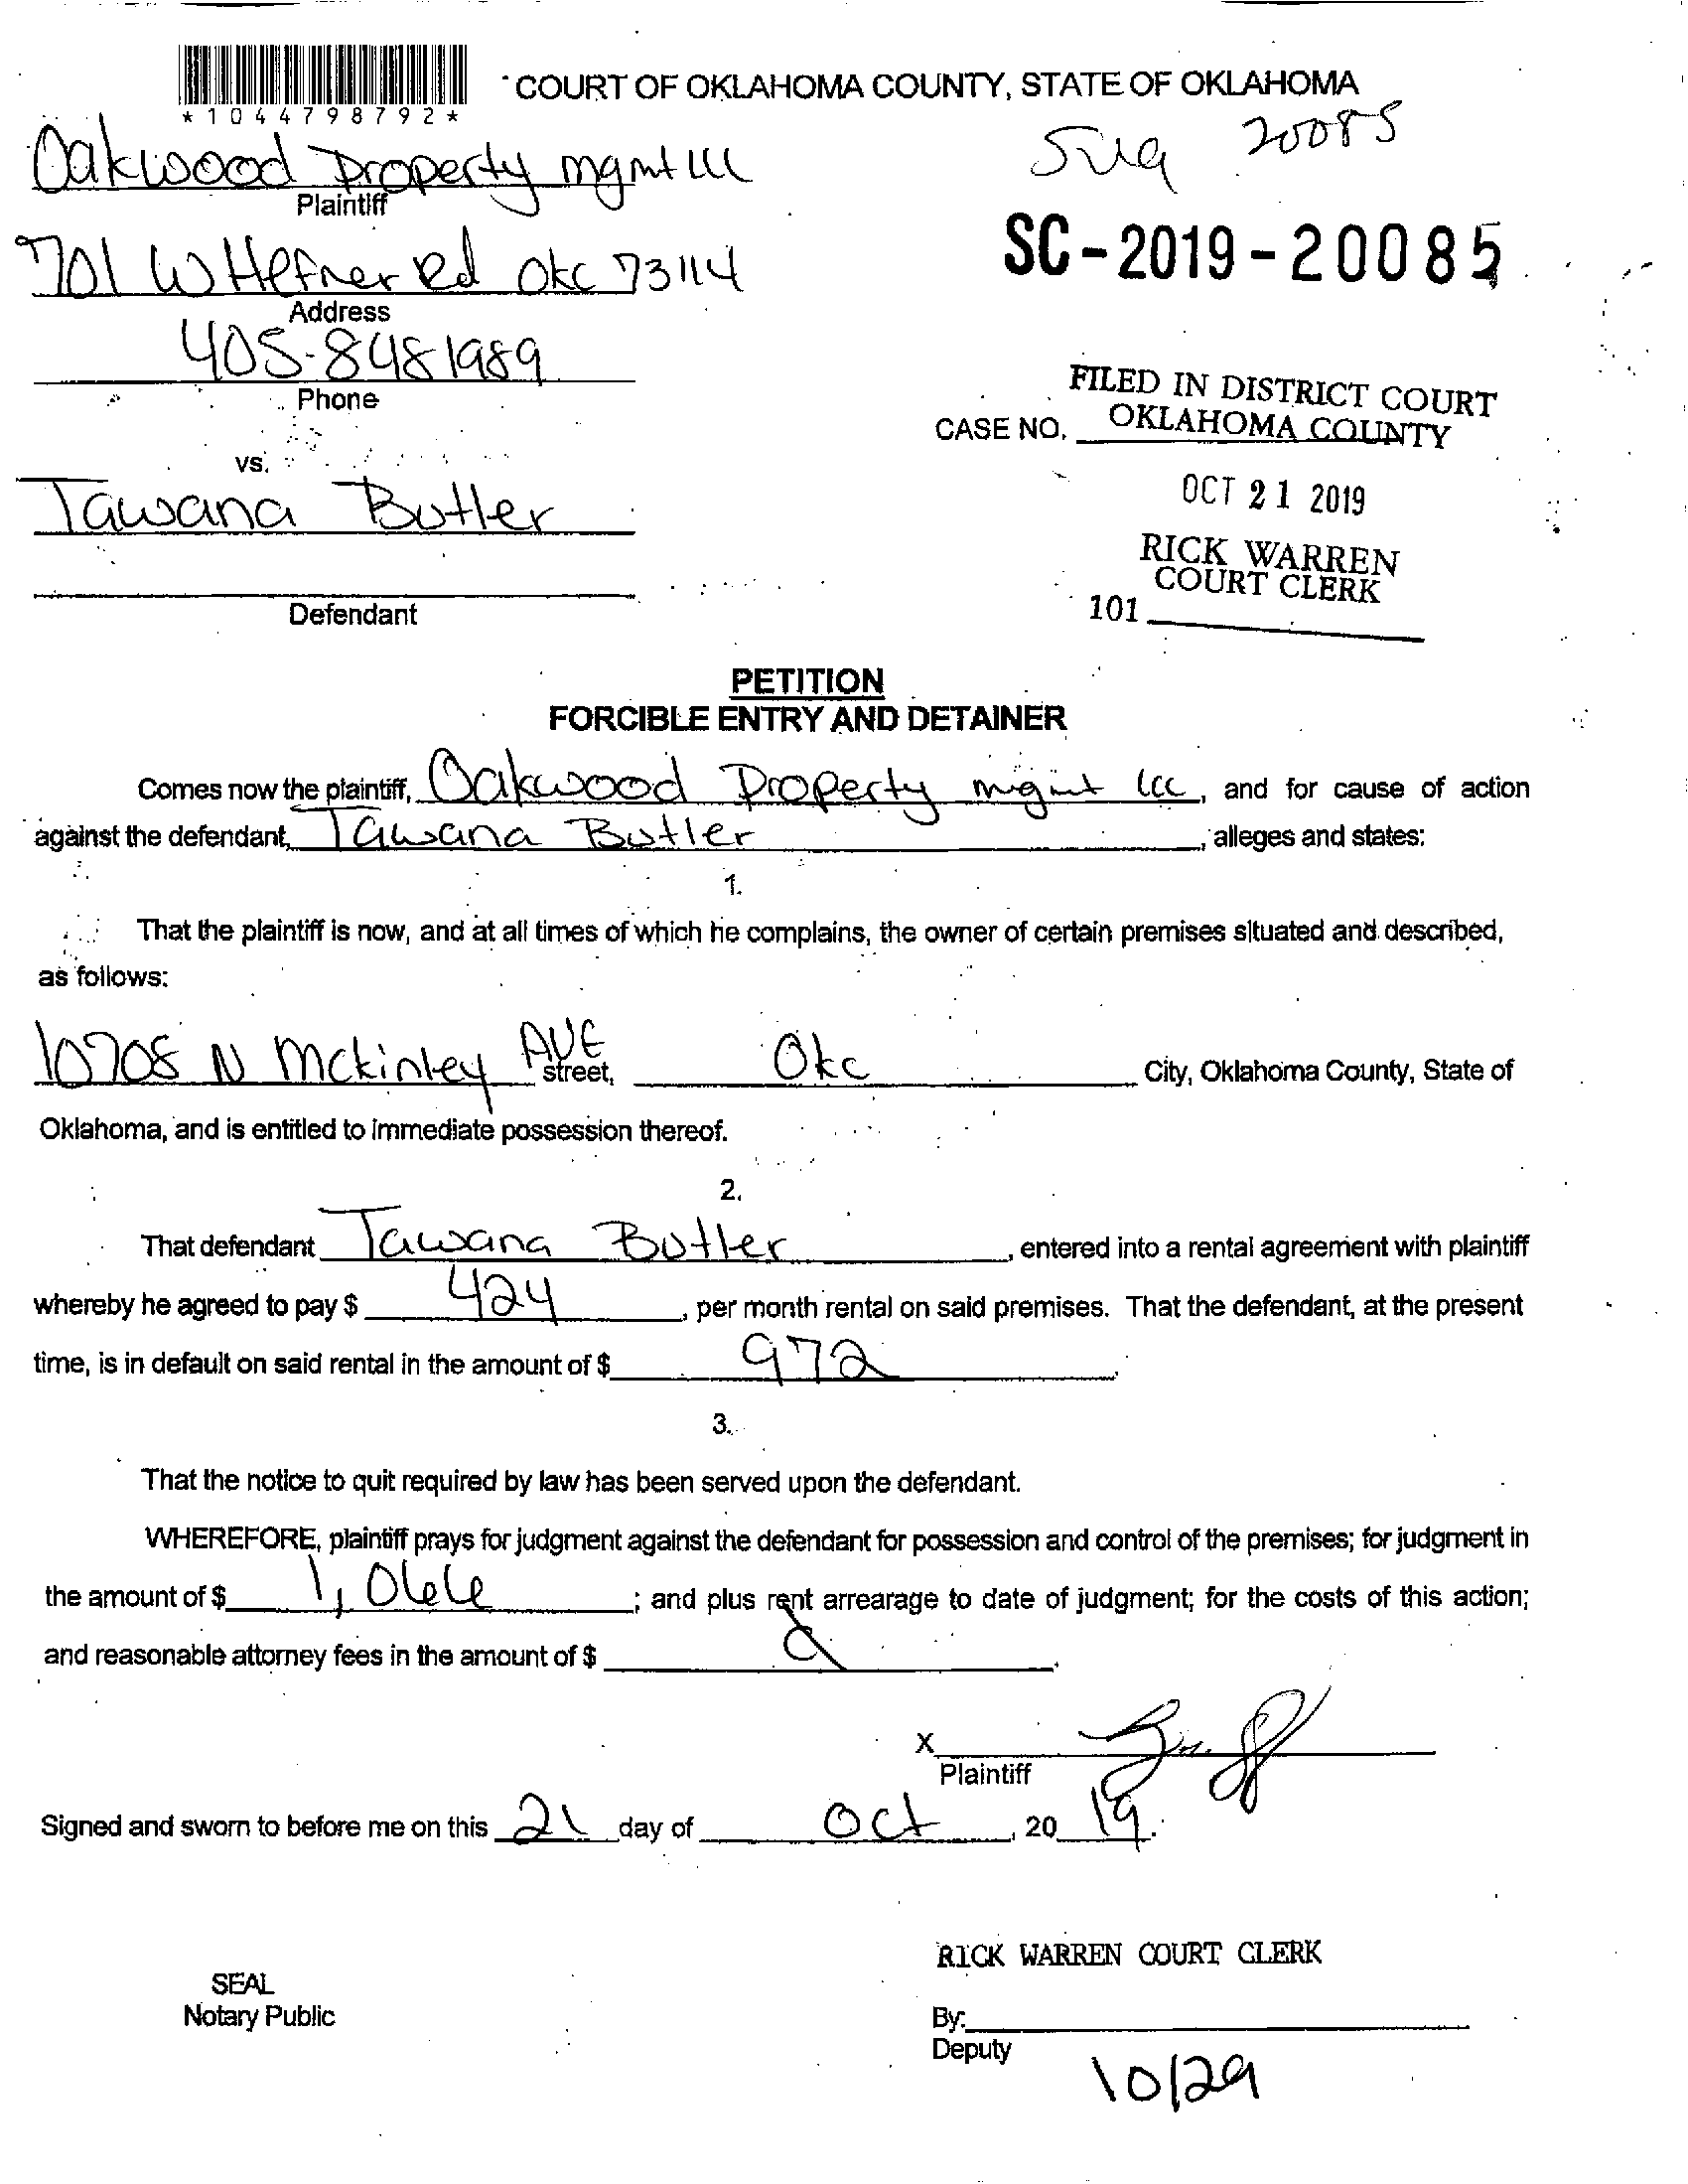 *1044798792*
COURT OF OKLAHOMA COUNTY, STATE OF OKLAHOMA
20085
Oakwood Property mgmt LLC
Plaintiff
SC-2019-20085
701 W Hefner Rd OKC 73114
Address
405-8481989
Phone
FILED IN DISTRICT COURT
CASE NO. OKLAHOMA COUNTY
vs.
OCT 21 2019
Tawana Butler
RICK WARREN
COURT CLERK
101
Defendant
PETITION
FORCIBLE ENTRY AND DETAINER
Comes now the plaintiff, Oakwood Property mgmt LLC, and for cause of action
against the defendant, Tawana Butler, alleges and states:
1.
That the plaintiff is now, and at all times of which he complains, the owner of certain premises situated and described,
as follows:
10708 N Mckinley AVE street, Okc City, Oklahoma County, State of
Oklahoma, and is entitled to immediate possession thereof.
2.
That defendant Tawana Butler, entered into a rental agreement with plaintiff
whereby he agreed to pay $ 424, per month rental on said premises. That the defendant, at the present
time, is in default on said rental in the amount of $ 972.
3.
That the notice to quit required by law has been served upon the defendant.
WHEREFORE, plaintiff prays for judgment against the defendant for possession and control of the premises; for judgment in
the amount of $ 1,066; and plus rent arrearage to date of judgment; for the costs of this action;
and reasonable attorney fees in the amount of $
X
Plaintiff
Signed and sworn to before me on this 21 day of Oct, 2019.
RICK WARREN COURT CLERK
SEAL
Notary Public
By:
Deputy
10/29